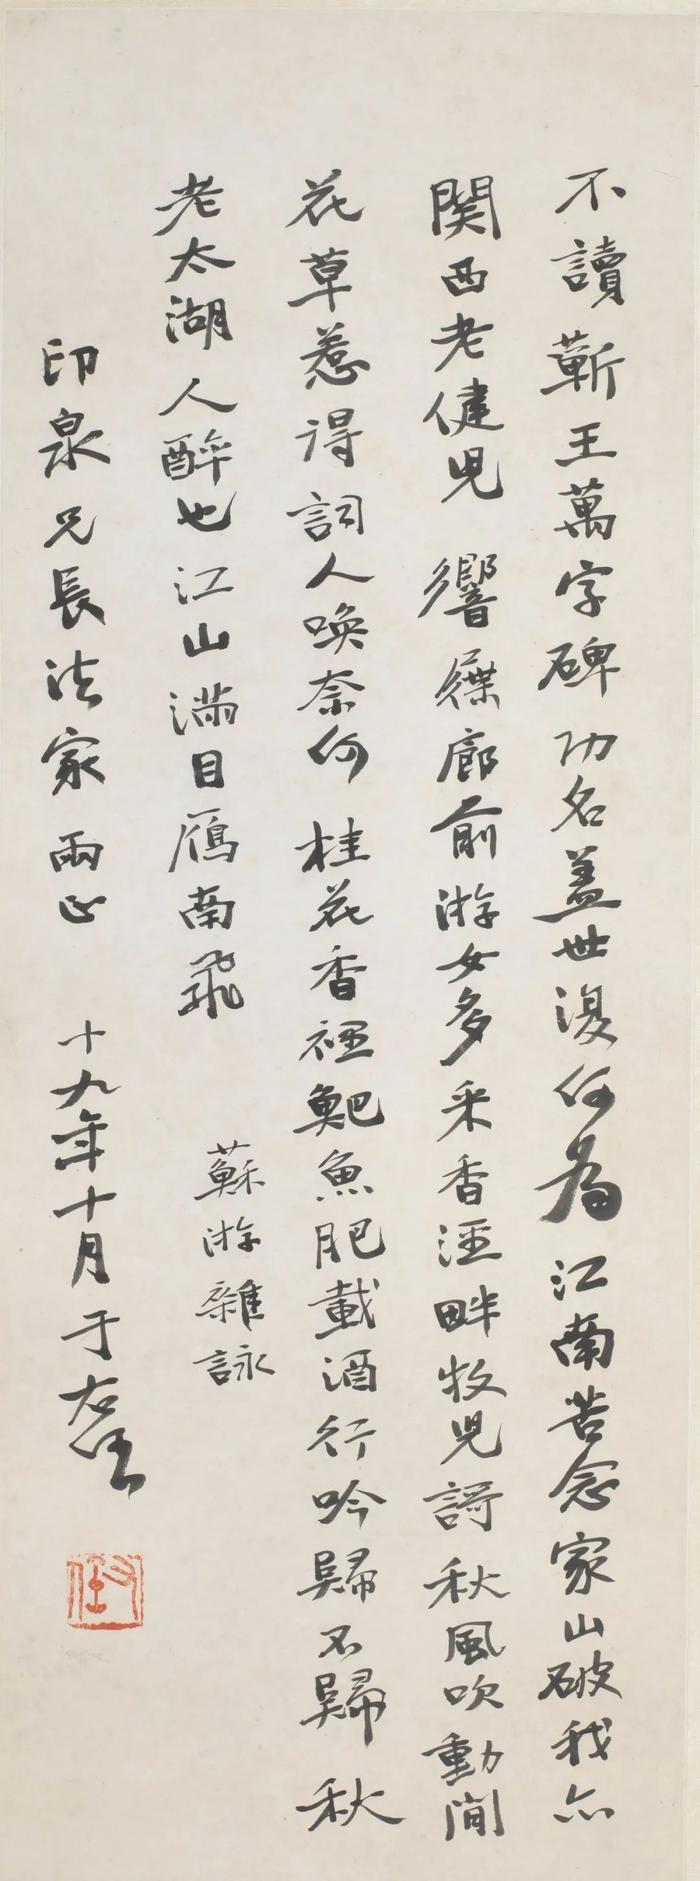 不讀蘄王萬字碑功名蓋世復何為江南苦念家山破我亦
関西老健児響屧廊前游女多采香涇畔牧児謌秋風吹動閒
花草惹得詞人喚奈何桂花香裡鮠魚肥載酒行吟歸不歸秋
老太湖人醉也江山滿目鴈南飛
蘇游雜詠
印泉兄長法家兩正
十九年十月于右任
右任